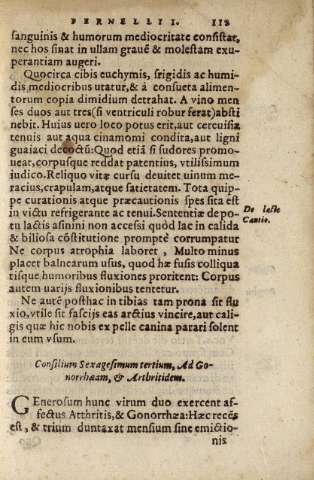 FERNELII I. 113
sanguinis & humorum mediocritate consistat,
nec hos sinat in ullam grauē & molestam exu-
perantiam augeri.
Quocirca cibis euchymis, frigidis ac humi-
dis mediocribus utatur, & à consueta alimen-
torum copia dimidium detrahat. A vino men
ses duos aut tres (si ventriculi robur ferat) absti
nebit. Huius uero loco potus erit, aut ceruisiæ
tenuis aut aqua cinamomi condita, aut ligni
guaiaci decoctū: Quod etiā si sudores promo-
ueat, corpusque reddat patentius, vtilissimum
iudico. Reliquo vitæ cursu deuitet uinum me-
racius, crapulam, atque satietatem. Tota quip-
pe curationis atque præcautionis spes sita est
in victu refrigerante ac tenui. Sententiæ de po-
tu lactis asinini non accessi quòd lac in calida
& biliosa cōstitutione promptè corrumpatur
Ne corpus atrophia laboret, Multo minus
placet balnearum usus, quòd hæ fusis colliqua
tisque humoribus fluxiones proritent: Corpus
autem uarijs fluxionibus tentetur.
De lacte
Cautio.
Ne autē posthac in tibias tam prona sit flu
xio, vtile sit fascijs eas arctius vincire, aut cali-
gis quæ hic nobis ex pelle canina parari solent
in eum vsum.
Consilium Sexagesimum tertium, Ad Go-
norrhæam, & Arthritidem.
GEnerosum hunc virum duo exercent af-
fectus Atthritis, & Gonorrhæa: Hæc recēs
est, & trium duntaxat mensium sine emictio-
nis